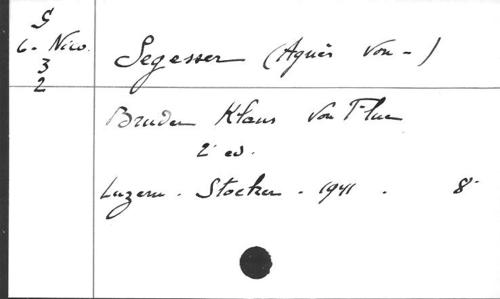 G
6 - Nico.
3
2
Segesser (Agnès von -)
Bruder Klaus von Flue
2e ed.
Luzern - Stocker - 1941 . 8°